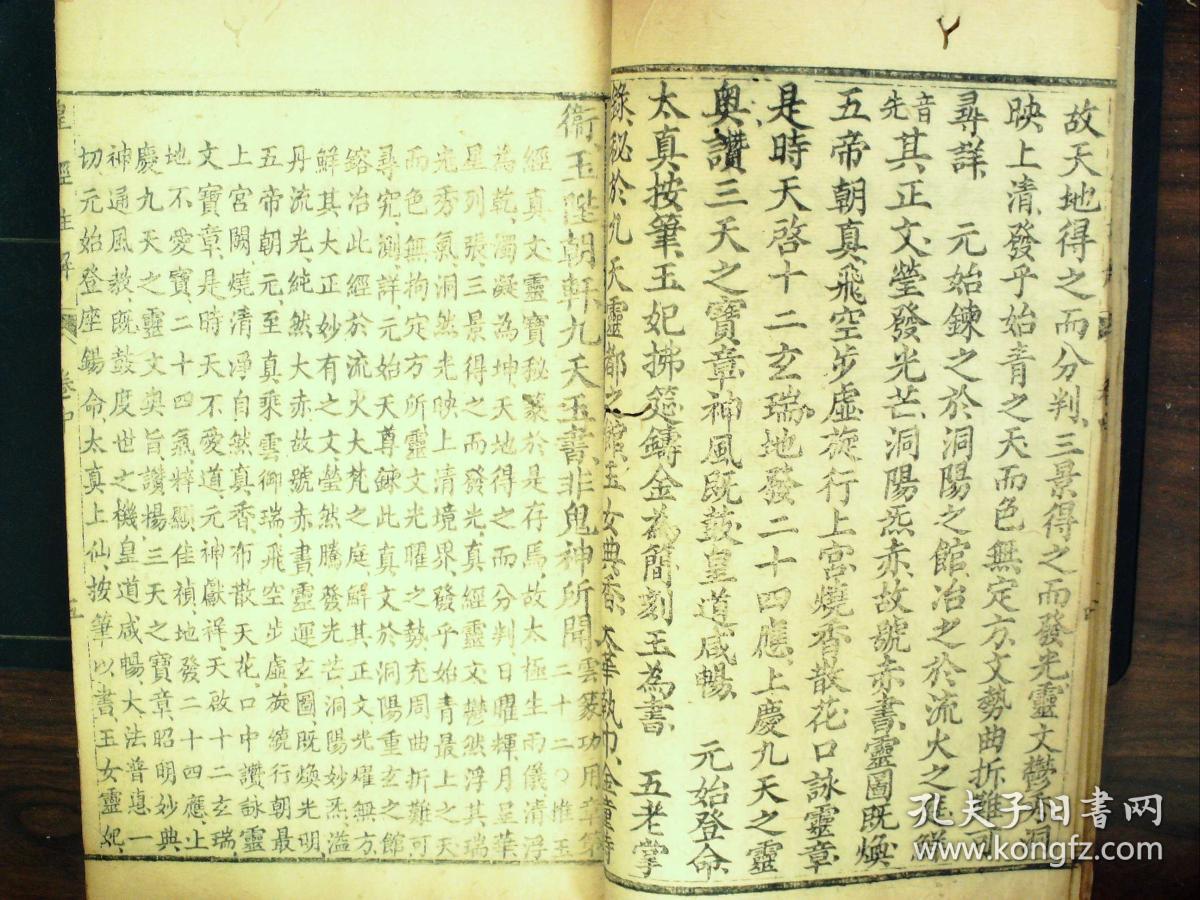 故天地得之而分判、三景得之而發光靈文鬱秀洞
映、上清、發乎始青之天而色無定方、文勢曲折難可
尋詳 元始鍊之於洞陽之館、冶之於流火之庭鮮
音先其正文、瑩發光芒、洞陽炁赤、故號赤書、靈圖既煥
五帝朝真、飛空步虛、旋行上宮、燒香散花口詠靈章
是時天啓十二玄瑞、地發二十四應、上慶九天之靈
奧、讚三天之寶章、神風既鼓、皇道咸暢 元始登命
太真、按筆、玉妃拂筵、鑄金為簡、刻玉為書 五老掌
錄、秘於九天靈都之館、玉女典香、太華執巾、金童侍
衛、玉陛朝軒、九天玉書、非鬼神所聞、雲篆功用章第
二十二○惟玉
經真文靈寶秘篆、於是存焉、故太極生兩儀、清浮
為乾、濁凝為坤、天地得之、而分判、日曜輝、月呈華
星列張、三景得之、而發光、真經靈文、鬱然浮其瑞
光、秀氣、洞然光映上清境界、發乎始青最上之天
而色無拘定方所、靈文光曜之勢、充周曲折難可
尋究、測詳、元始天尊、鍊此真文、於洞陽重玄之館
鎔冶此經、於流火大梵之庭、解其正文、光耀無方
鮮其大正妙有之文、瑩然騰發光芒、洞陽妙炁溢
丹流光、純然大赤、故號赤書、靈運玄圖、既煥光明
五帝朝元、至真乘雲御瑞、飛空步虛、旋繞行朝最
上宮闕、燒清淨自然真香、布散天花、口中讚詠靈
文寶章、是時天不愛道、元神獻祥、天啟十二玄瑞
地不愛寶、二十四氣粹顯佳禎、地發二十四應、上
慶九天之靈文奧旨、讚揚三天之寶章、昭明妙典
神通風教、既鼓度世之機、皇道咸暢、大法普惠一
切元始登座、錫命、太真上仙、按筆以書、玉女靈妃
皇經註解 卷中 五
孔夫子旧书网
www.kongfz.com